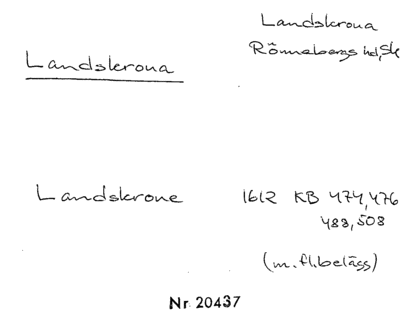 Landskrona
Rönnebergs hd, Sk
Landskrona
Landskrone 1612 KB 474, 476
488, 508
(m. fl. belägg)
Nr. 20437